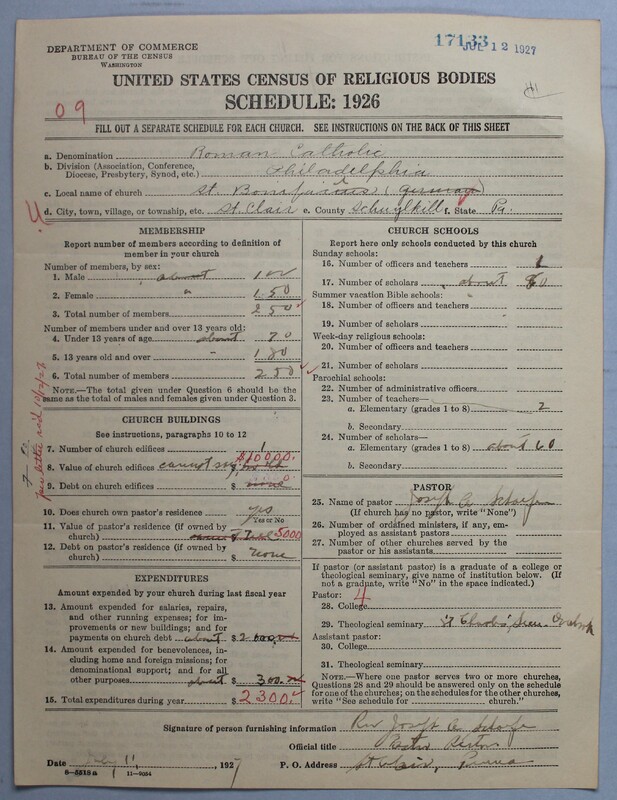 DEPARTMENT OF COMMERCE
BUREAU OF THE CENSUS
WASHINGTON
17133
JUL 12 1927
UNITED STATES CENSUS OF RELIGIOUS BODIES
SCHEDULE: 1926
09
FILL OUT A SEPARATE SCHEDULE FOR EACH CHURCH. SEE INSTRUCTIONS ON THE BACK OF THIS SHEET
a. Denomination Roman Catholic
b. Division (Association, Conference, Diocese, Presbytery, Synod, etc.) Philadelphia
c. Local name of church St. Bonafacius (German)
d. City, town, village, or township, etc. St. Clair e. County Schuylkill f. State Pa.
MEMBERSHIP
Report number of members according to definition of
member in your church
Number of members, by sex:
1. Male about 100
2. Female " 150
3. Total number of members 250
Number of members under and over 13 years old:
4. Under 13 years of age about 70
5. 13 years old and over " 180
6. Total number of members 250
NOTE.—The total given under Question 6 should be the
same as the total of males and females given under Question 3.
CHURCH BUILDINGS
See instructions, paragraphs 10 to 12
7. Number of church edifices 1
8. Value of church edifices cannot say $10000.
9. Debt on church edifices $ none
10. Does church own pastor's residence yes
Yes or No
11. Value of pastor's residence (if owned by
church) $ 5000
12. Debt on pastor's residence (if owned by
church) $ none
EXPENDITURES
Amount expended by your church during last fiscal year
13. Amount expended for salaries, repairs,
and other running expenses; for im-
provements or new buildings; and for
payments on church debt about $ 2000.00
14. Amount expended for benevolences, in-
cluding home and foreign missions; for
denominational support; and for all
other purposes about $ 300.00
15. Total expenditures during year $ 2300.
CHURCH SCHOOLS
Report here only schools conducted by this church
Sunday schools:
16. Number of officers and teachers 1
17. Number of scholars about 60
Summer vacation Bible schools:
18. Number of officers and teachers
19. Number of scholars
Week-day religious schools:
20. Number of officers and teachers
21. Number of scholars
Parochial schools:
22. Number of administrative officers
23. Number of teachers—
a. Elementary (grades 1 to 8) 2
b. Secondary
24. Number of scholars—
a. Elementary (grades 1 to 8) about 60
b. Secondary
PASTOR
25. Name of pastor Joseph A
(If church has no pastor, write "None")
26. Number of ordained ministers, if any, em-
ployed as assistant pastors
27. Number of other churches served by the
pastor or his assistants
If pastor (or assistant pastor) is a graduate of a college or
theological seminary, give name of institution below. (If
not a graduate, write "No" in the space indicated.)
Pastor: 4
28. College
29. Theological seminary St Charles' Sem. Overbrook
Assistant pastor:
30. College
31. Theological seminary
NOTE.—Where one pastor serves two or more churches,
Questions 28 and 29 should be answered only on the schedule
for one of the churches; on the schedules for the other churches,
write "See schedule for church."
Signature of person furnishing information Rev Joseph A
Official title Rector
Date July 11, 1927 P. O. Address St Clair, Penna
8—5518a 11—9034